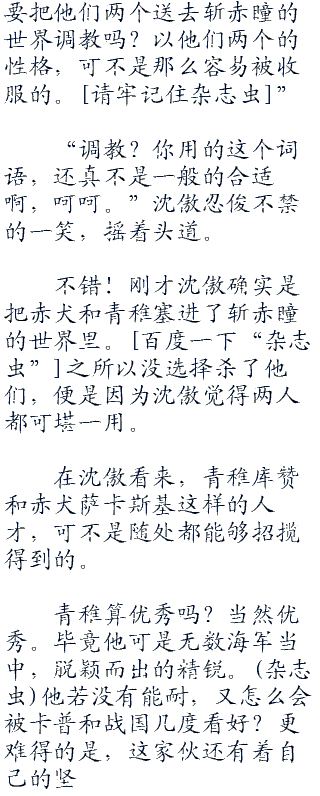 要把他们两个送去斩赤瞳的
世界调教吗？以他们两个的
性格，可不是那么容易被收
服的。[请牢记住杂志虫]”
“调教？你用的这个词
语，还真不是一般的合适
啊，呵呵。”沈傲忍俊不禁
的一笑，摇着头道。
不错！刚才沈傲确实是
把赤犬和青稚塞进了斩赤瞳
的世界里。[百度一下“杂志
虫”]之所以没选择杀了他
们，便是因为沈傲觉得两人
都可堪一用。
在沈傲看来，青稚库赞
和赤犬萨卡斯基这样的人
才，可不是随处都能够招揽
得到的。
青稚算优秀吗？当然优
秀。毕竟他可是无数海军当
中，脱颖而出的精锐。(杂志
虫)他若没有能耐，又怎么会
被卡普和战国几度看好？更
难得的是，这家伙还有着自
己的坚